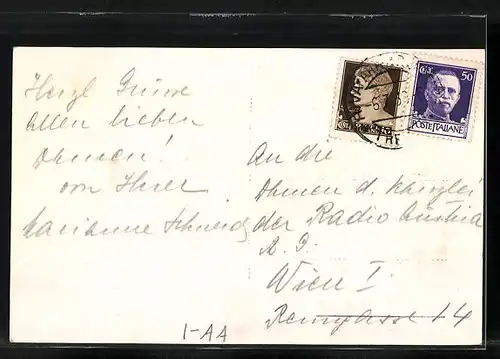 Herzl Grüsse
allen lieben
Damen!
von Ihrer
Marianne
An die
Damen d. Kanzlei
der Radio Austria
A. G.
Wien I.
Renngasse 14
1-AA
50
POSTE ITALIANE